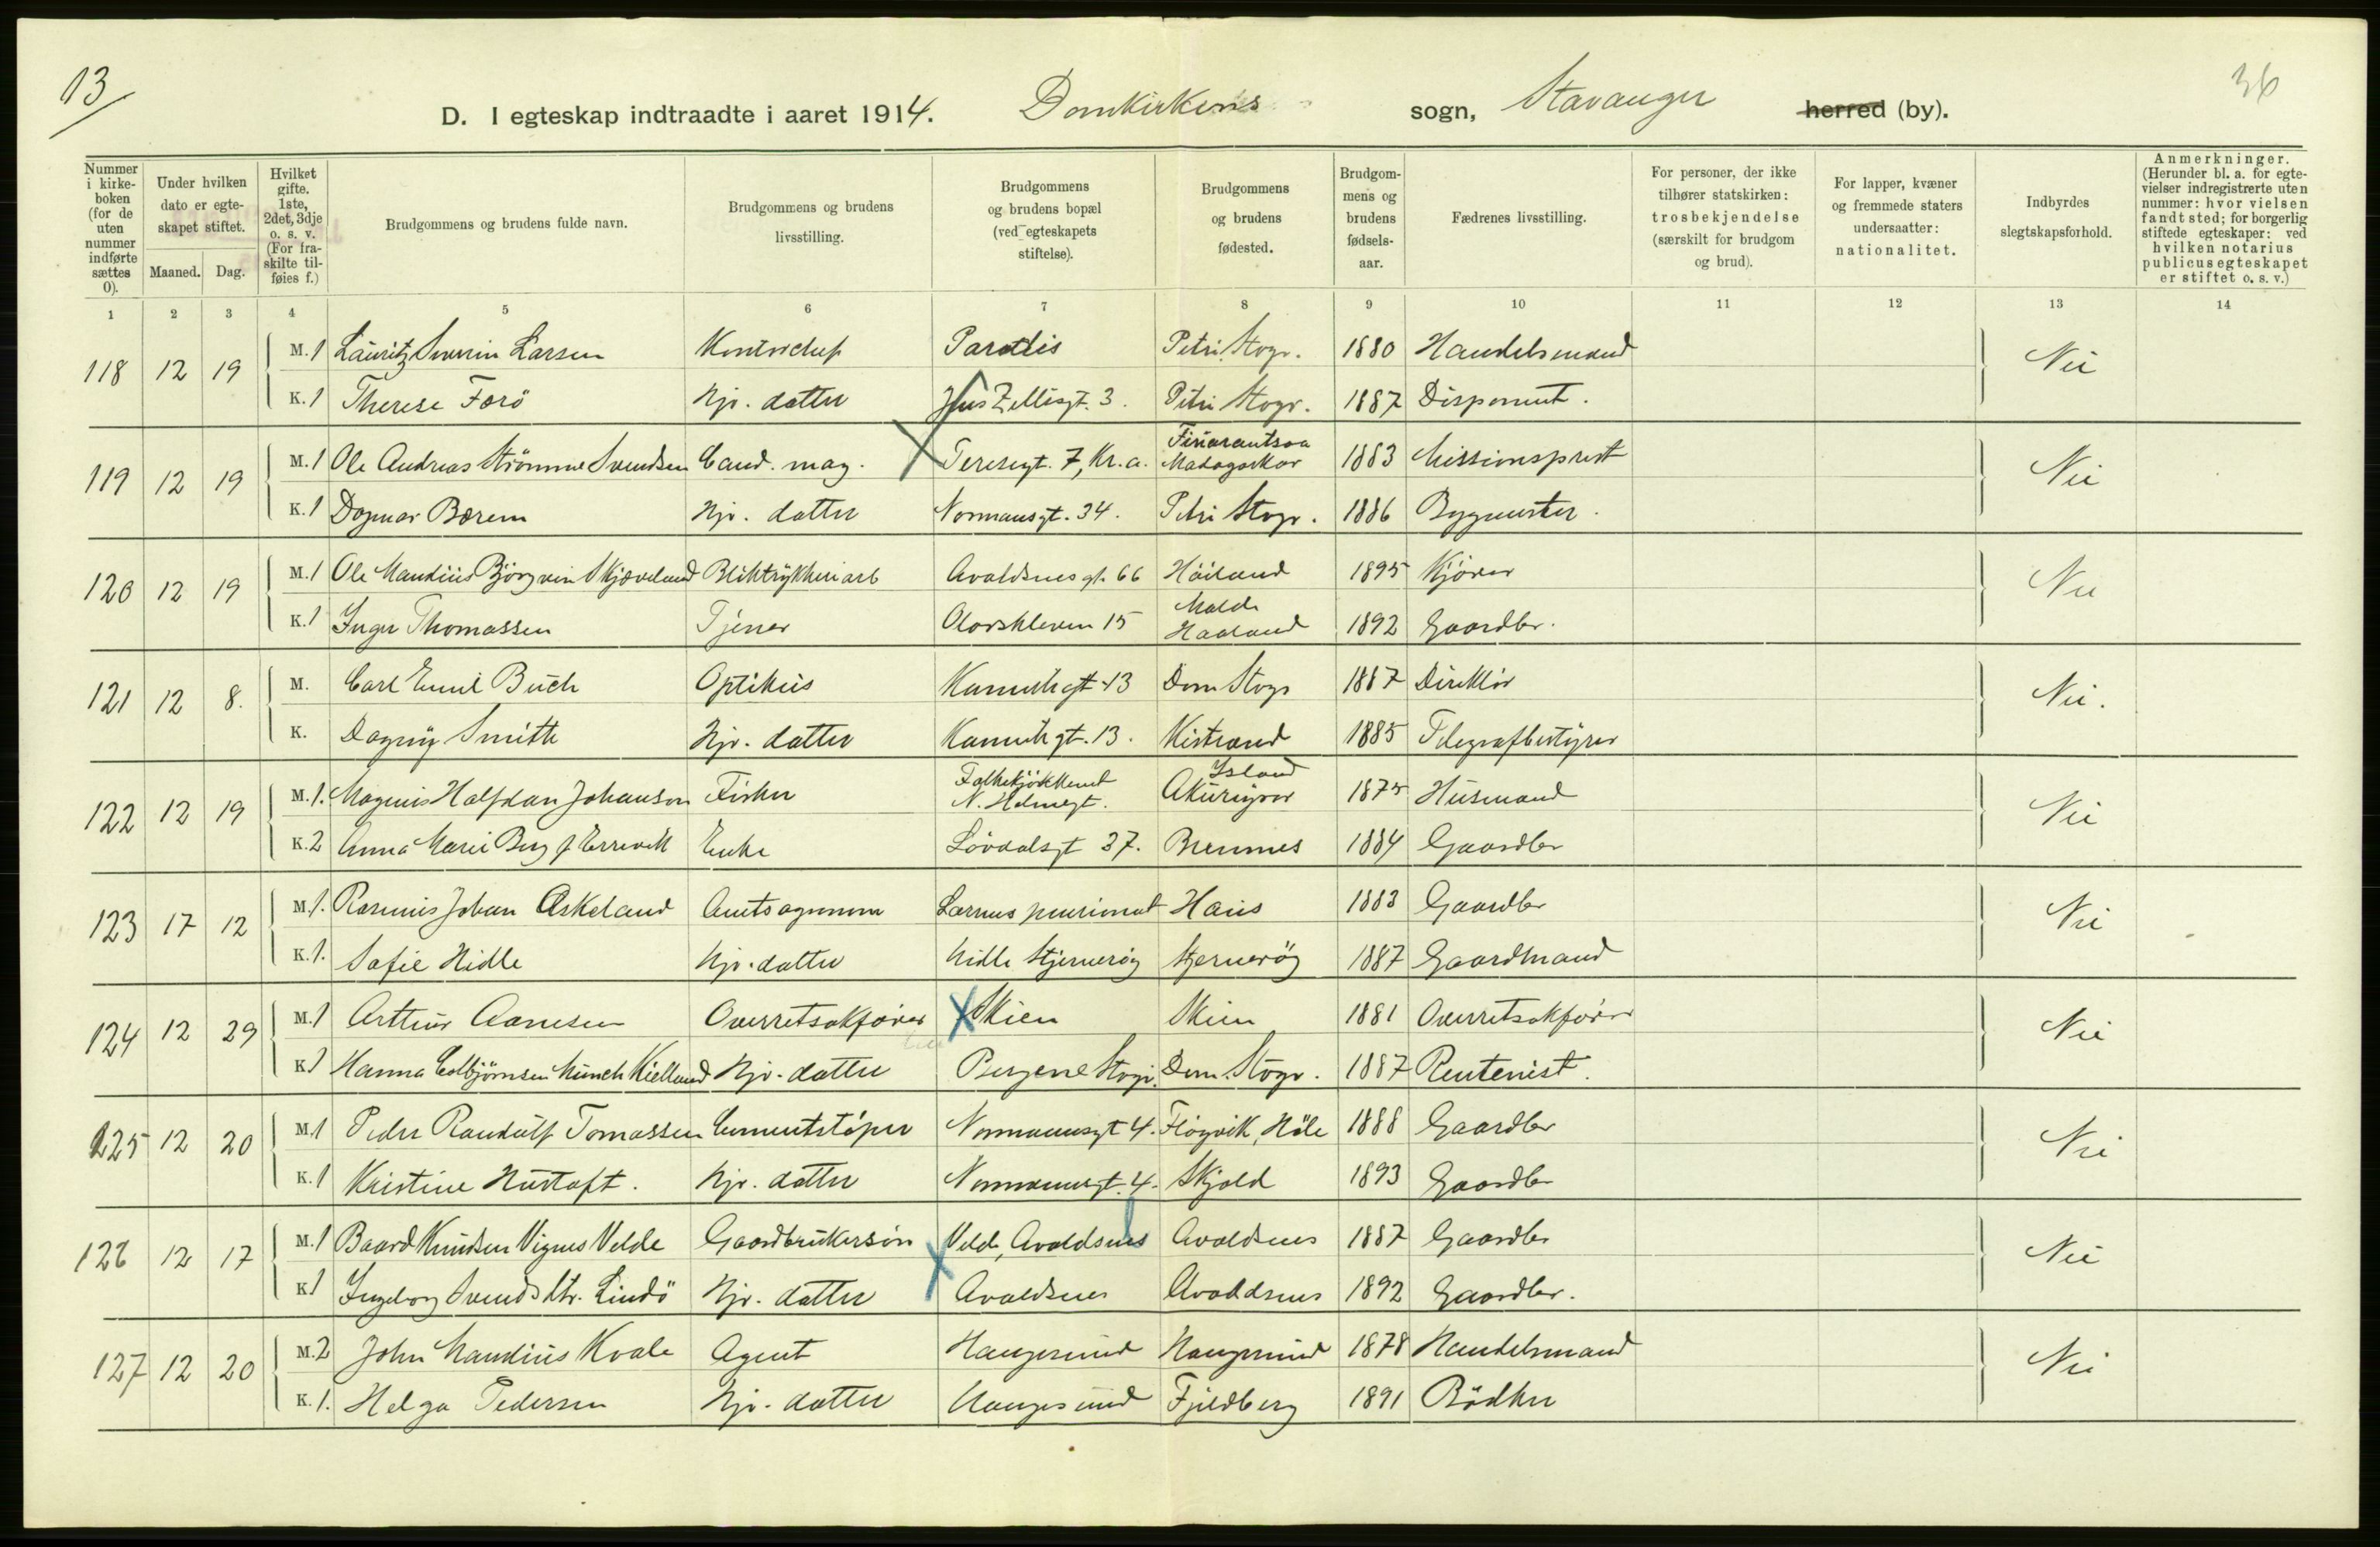 13
36
D. I egteskap indtraadte i aaret 1914. Domkirkens sogn, Stavanger herred (by).
Nummer i kirke- boken (for de uten nummer indførte sættes 0).
Under hvilken dato er egte- skapet stiftet.
Maaned. Dag.
Hvilket gifte. 1ste, 2det, 3dje o. s. v. (For fra- skilte til- føies f.)
Brudgommens og brudens fulde navn.
Brudgommens og brudens livsstilling.
Brudgommens og brudens bopæl (ved egteskapets stiftelse).
Brudgommens og brudens fødested.
Brudgom- mens og brudens fødsels- aar.
Fædrenes livsstilling.
For personer, der ikke tilhører statskirken: trosbekjendelse (særskilt for brudgom og brud).
For lapper, kvæner og fremmede staters undersaatter: nationalitet.
Indbyrdes slegtskapsforhold.
Anmerkninger. (Herunder bl. a. for egte- vielser indregistrerte uten nummer: hvor vielsen fandt sted; for borgerlig stiftede egteskaper: ved hvilken notarius publicus egteskapet er stiftet o. s. v.)
1 2 3 4 5 6 7 8 9 10 11 12 13 14
118 12 19 M. 1 Lauritz Severin Larsen Kontorchef Paradis Petri Stvgr. 1880 Handelsmand Nei
K. 1 Therese Forö Hjv. datter Jens Zetlitzgt. 3. Petri Stvgr. 1887 Disponent.
119 12 19 M. 1 Ole Andreas Strömme Svendsen Cand. mag. Teresegt. 7, Kr.a. Fianarantsoa Madagaskar 1883 Missionsprest Nei
K. 1 Dagmar Børem Hjv. datter Normansgt. 34. Petri Stvgr. 1886 Bygmester.
120 12 19 M. 1 Ole Mandius Björgvin Skjæveland Bliktrykkeriarb Avaldsnesgt. 66 Höiland 1895 Kjører Nei
K. 1 Inger Thomassen Tjener Olavskleven 15 Molde Haaland 1892 Gaardbr.
121 12 8. M. Carl Emil Buch Optikus Kannikgt 13 Dom Stvgr 1887 Direktör Nei.
K. Dagny Smith Hjv. datter Kannikgt. 13. Kistrand 1885 Telegrafbestyrer
122 12 19 M. 1. Magnus Halfdan Johanson Fisker Folkekjökkenet N. Holmegt. Island Akureyrar 1875 Husmand Nei
K. 2 Anna Marie Berg f Errevik Enke Lövdalsgt 37. Bremnes 1884 Gaardbr
123 17 12 M. 1. Rasmus Johan Askeland Amtsagronom Larsens pensionat Haus 1883 Gaardbr Nei
K. 1. Sofie Hidle Hjv. datter Hidle Stjernerøy Stjernerøy 1887 Gaardmand
124 12 29 M. 1 Arthur Aanesen Overretsakfører Skien Skien 1881 Overretsakfører Nei
K. 1 Hanna Colbjörnsen Munch Kielland Hjv. datter Bergene Stvgr. Dom. Stvgr. 1887 Rentenist.
125 12 20 M. 1 Peder Randulf Tomassen Cementstöper Normannsgt 4. Fløgvik, Høle 1888 Gaardbr Nei
K. 1 Kristine Hustoft. Hjv. datter Normannsgt. 4. Skjold 1893 Gaardbr
126 12 17 M. 1 Baard Knudsen Vignes Velde Gaardbrukersön Velde, Avaldsnes Avaldsnes 1887 Gaardbr Nei
K. 1 Ingeborg Svendsdtr. Lindö Hjv. datter Avaldsnes Avaldsnes 1892 Gaardbr.
127 12 20 M. 2 John Mandius Kvale Agent Haugesund Haugesund 1878 Handelsmand Nei
K. 1. Helga Pedersen Hjv. datter Haugesund Fjeldberg 1891 Bödker